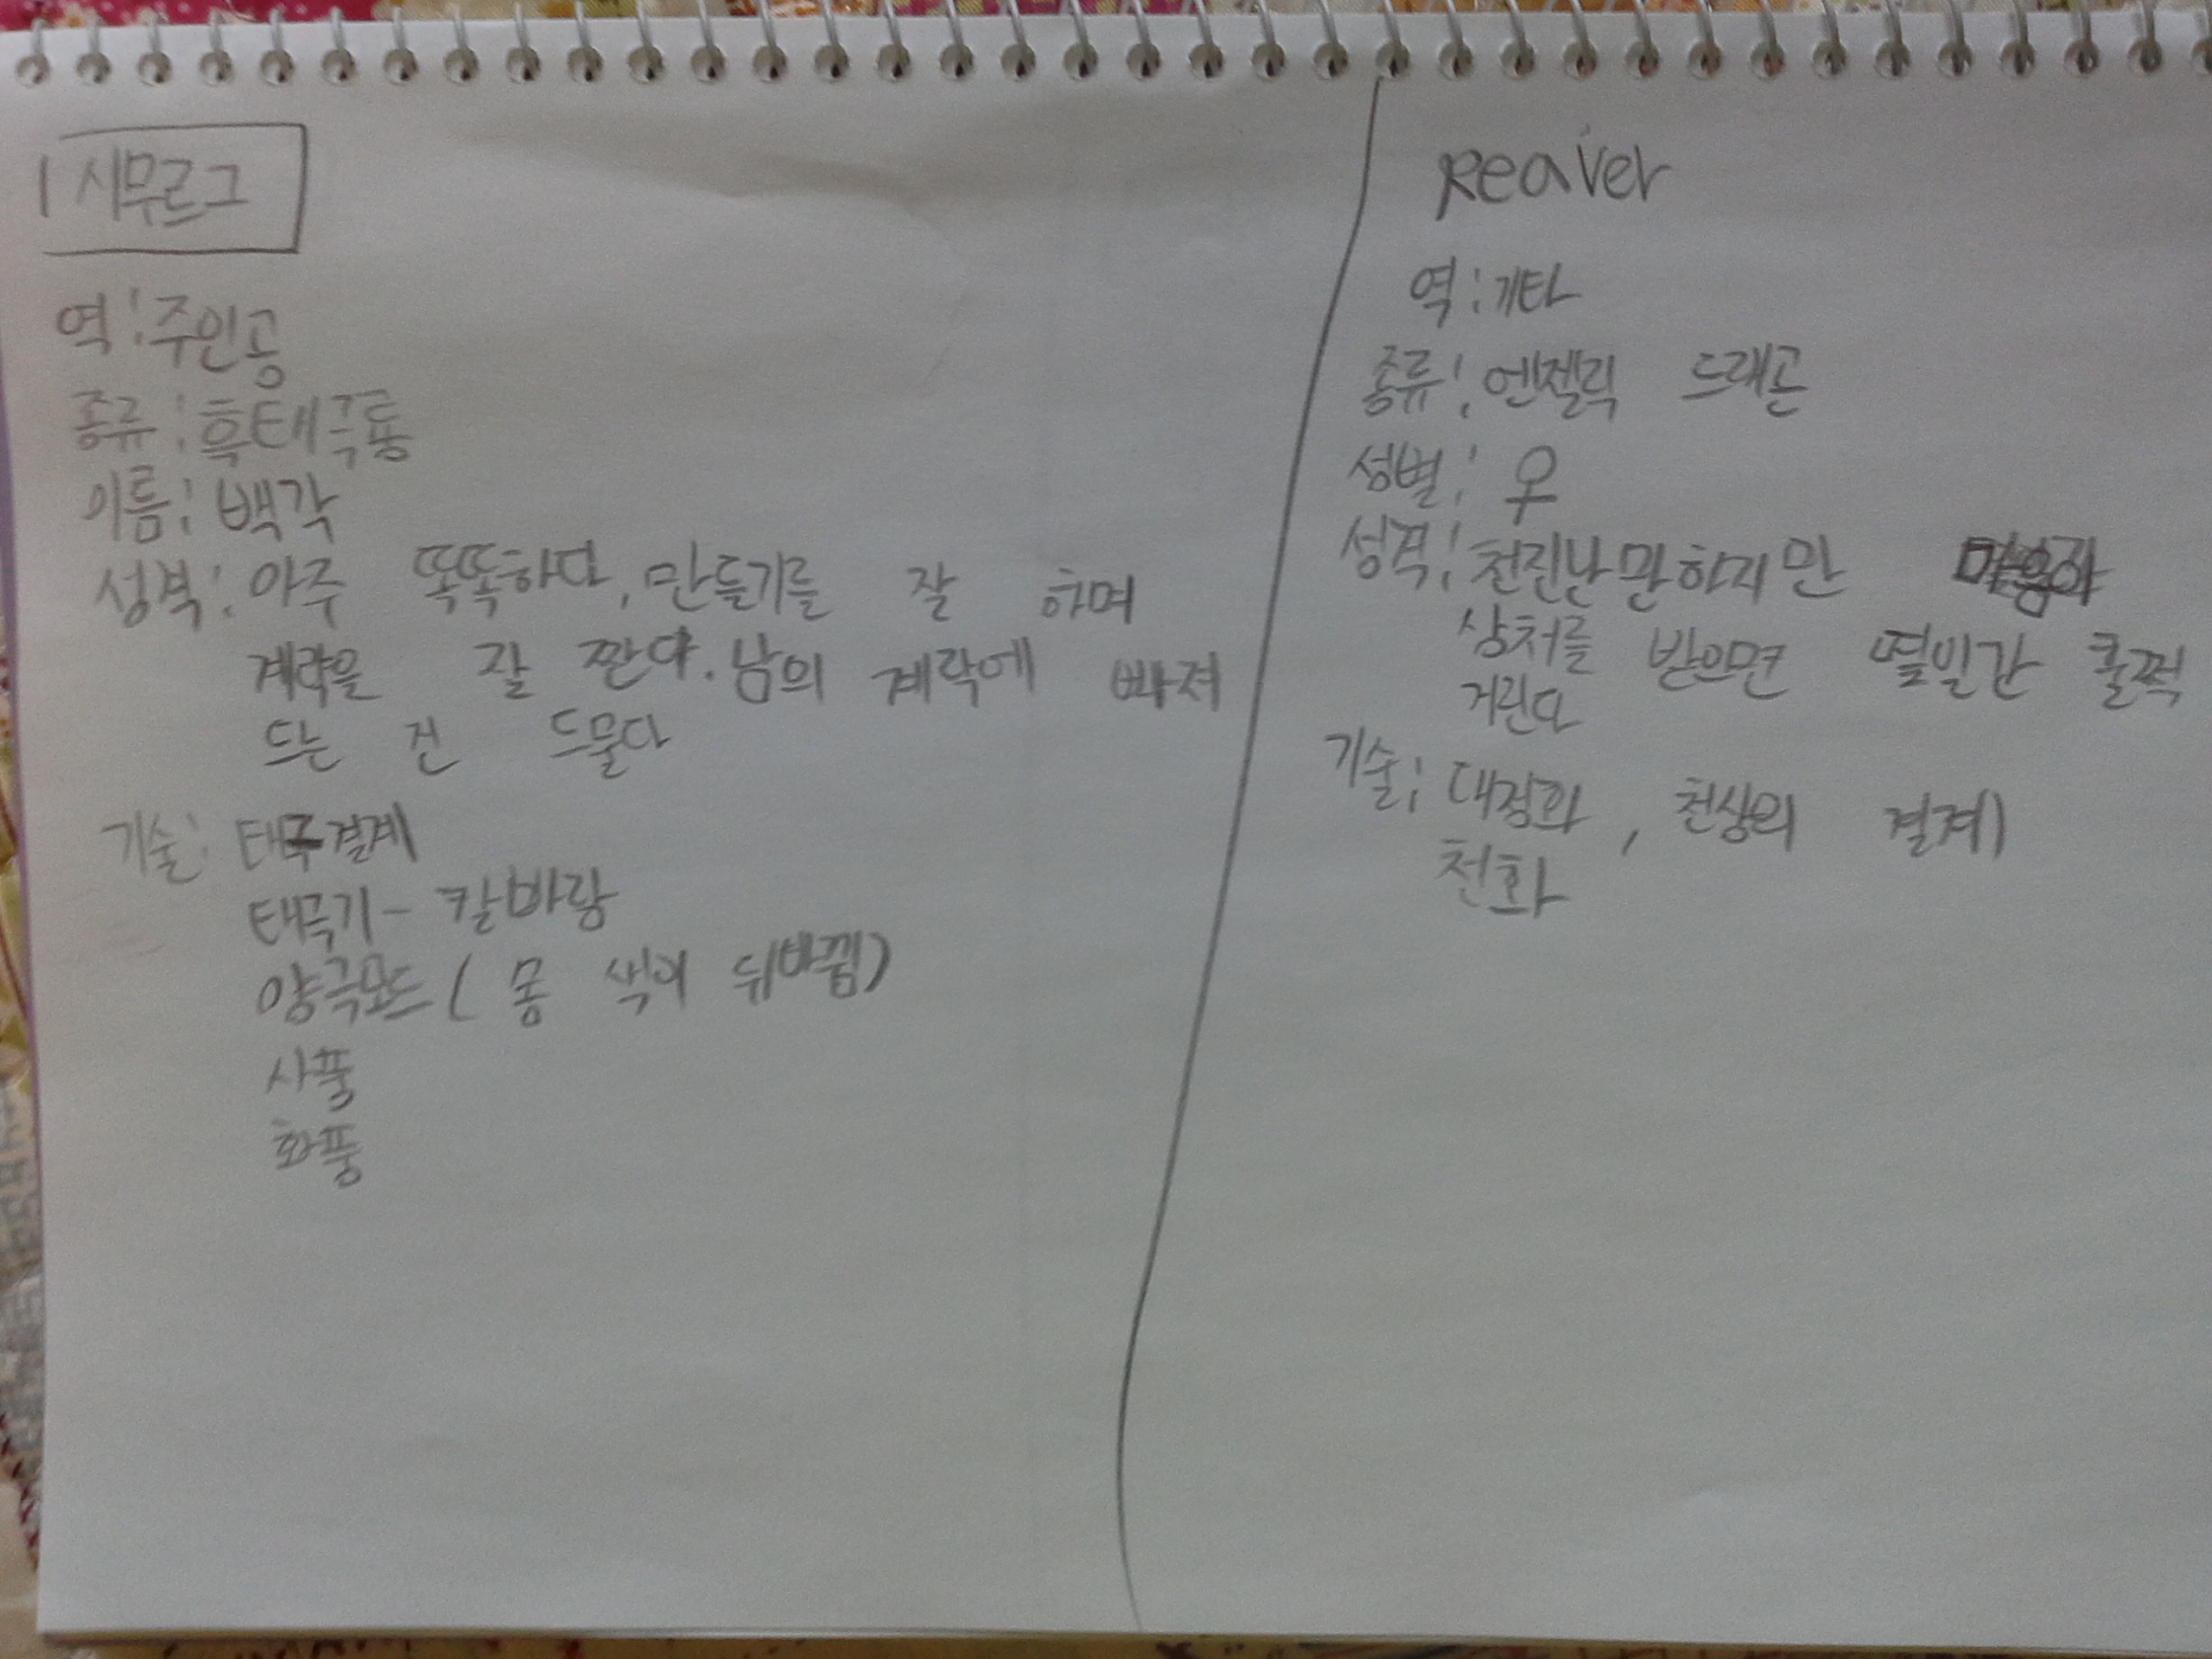 1 시무르그
역:주인공
종류:흑태극룡
이름:백각
성격:아주 똑똑하다, 만들기를 잘 하며
계략을 잘 짠다. 남의 계략에 빠져
드는 건 드물다
기술: 태극결계
태극기-칼바람
양극모드( 몸 색이 뒤바뀜)
사풍
화풍
Reaver
역:기타
종류:엔젤릭 드래곤
성별:우
성격:천진난만하지만
상처를 받으면 몇일간 훌쩍
거린다
기술: 대정화, 천상의 결계
천화